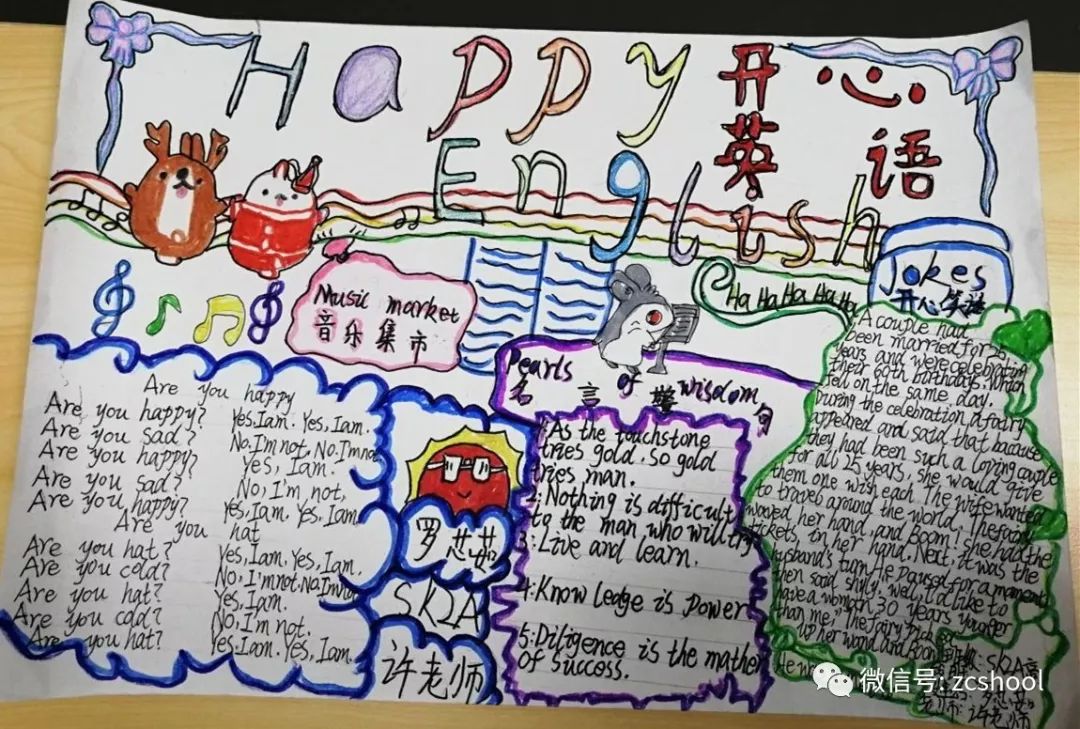 Happy 开心
English 英语
Music market
音乐集市
Are you happy
Are you happy? Yes,I am. Yes, I am.
Are you sad? No.I'm not, No.I'm not
Are you happy? Yes, I am.
Are you sad? No, I'm not,
Are you happy? Yes, I am. Yes, I am
Are you hat
Are you hat? Yes,I am. Yes, I am,
Are you cold? No, I'm not. No, I'm not
Are you hat? Yes, I am.
Are you cold? No, I'm not.
Are you hat? Yes.I am. Yes, I am.
罗芯茹
SK2A
许老师
Pearls of wisdom
名言警句
1:As the touchstone
tries gold. so gold
tries man.
2:Nothing is difficult
to the man who will try
3:Live and learn.
4:Know ledge is power
5:Diligence is the mather
of success.
Ha Ha Ha Ha Ha
Jokes
开心笑话
A couple had
been married for 25
years and were celebrating
their 60th birthdays. which
fell on the same day.
During the celebration a fairy
appeared and said that bacause
they had been such a loving couple
for all 25 years, she would give
them one wish each. The wife wanted
to travel around the world. The fairy
waved her hand, and boom! She had the
tickets in her hand. Next, it was the
husband's turn. He paused for a moment,
then said shyly. well, I'd like to
have a woman 30 years younger
than me, The fairy picked
up her wand and boom
He w
班级: SK2A
老师: 许老师
微信号: zcshool